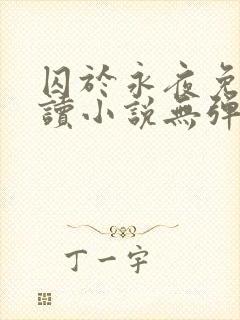 囚於永夜免
讀小說無彈
丁一宇